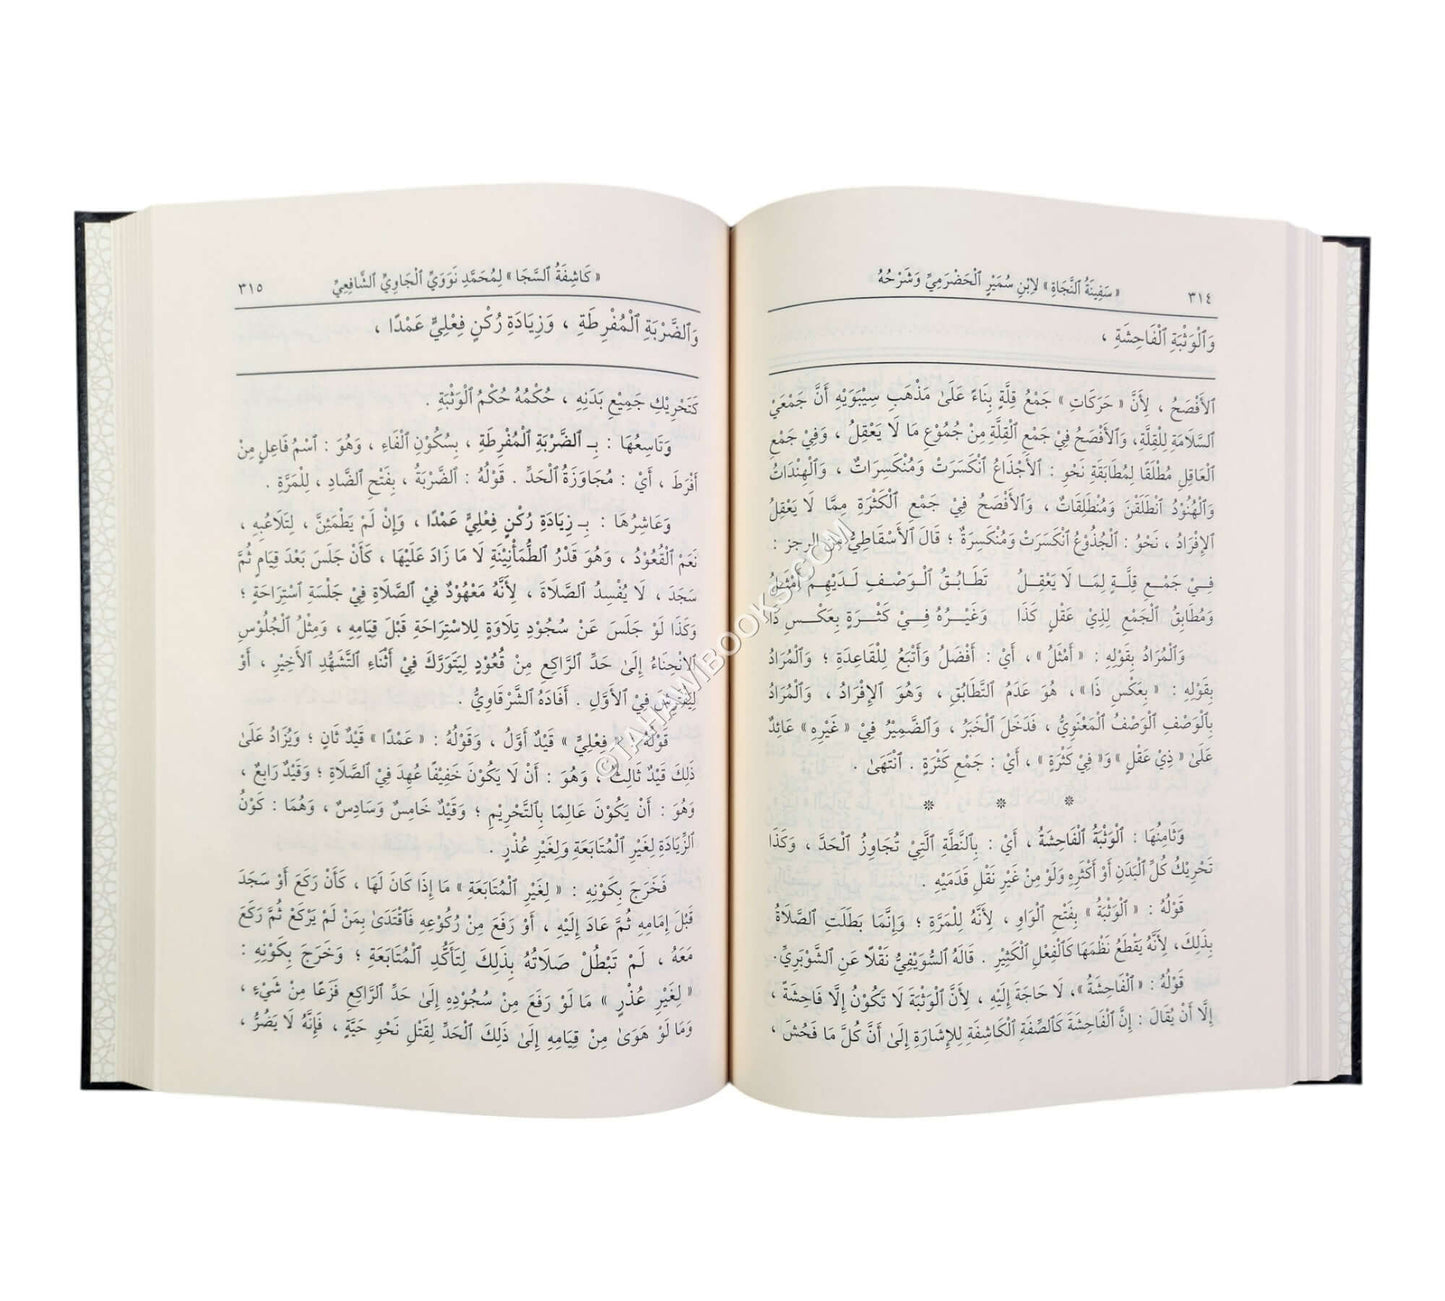 ٣١٤ « سَفِينَةُ ٱلنَّجَاةِ » لِابْنِ سُمَيْرٍ ٱلْحَضْرَمِيِّ وَشَرْحُهُ
وَٱلْوَثْبَةِ ٱلْفَاحِشَةِ ،
ٱلأَفْصَحُ ، لِأَنَّ « حَرَكَاتٍ » جَمْعُ قِلَّةٍ بِنَاءً عَلَىٰ مَذْهَبِ سِيْبَوَيْهِ أَنَّ جَمْعَيْ
ٱلسَّلَامَةِ لِلْقِلَّةِ، وَٱلأَفْصَحُ فِيْ جَمْعِ ٱلْقِلَّةِ مِنْ جُمُوْعِ مَا لَا يَعْقِلُ ، وَفِيْ جَمْعِ
ٱلْعَاقِلِ مُطْلَقًا لِمُطَابَقَةِ نَحْوِ : ٱلأَجْذَاعُ ٱنْكَسَرَتْ وَمُنْكَسِرَاتٌ ، وَٱلْهِنْدَاتُ
وَٱلْهُنُوْدُ ٱنْطَلَقْنَ وَمُنْطَلِقَاتٌ ، وَٱلأَفْصَحُ فِيْ جَمْعِ ٱلْكَثْرَةِ مِمَّا لَا يَعْقِلُ
ٱلإِفْرَادُ ، نَحْوُ : ٱلْجُذُوْعُ ٱنْكَسَرَتْ وَمُنْكَسِرَةٌ ؛ قَالَ ٱلأَسْقَاطِيُّ مِنَ الرجز :
فِيْ جَمْعِ قِلَّةٍ لِمَا لَا يَعْقِلُ تَطَابُقُ ٱلْوَصْفِ لَدَيْهِمْ أَمْثَلُ
وَمُطَابِقُ ٱلْجَمْعِ لِذِيْ عَقْلٍ كَذَا وَغَيْرُهُ فِيْ كَثْرَةٍ بِعَكْسِ ذَا
وَٱلْمُرَادُ بِقَوْلِهِ : « أَمْثَلُ » ، أَيْ : أَفْضَلُ وَأَتْبَعُ لِلْقَاعِدَةِ ؛ وَٱلْمُرَادُ
بِقَوْلِهِ : « بِعَكْسِ ذَا » ، هُوَ عَدَمُ ٱلتَّطَابُقِ ، وَهُوَ ٱلإِفْرَادُ ، وَٱلْمُرَادُ
بِٱلْوَصْفِ ٱلْوَصْفُ ٱلْمَعْنَوِيُّ ، فَدَخَلَ ٱلْخَبَرُ ، وَٱلضَّمِيْرُ فِيْ « غَيْرِهِ » عَائِدٌ
عَلَىٰ « ذِيْ عَقْلٍ » وَ« فِيْ كَثْرَةٍ » ، أَيْ : جَمْعِ كَثْرَةٍ . ٱنْتَهَىٰ .
* * *
وَثَامِنُهَا : ٱلْوَثْبَةُ ٱلْفَاحِشَةُ ، أَيْ : بِٱلنَّطَّةِ ٱلَّتِيْ تُجَاوِزُ ٱلْحَدَّ ، وَكَذَا
تَحْرِيْكُ كُلِّ ٱلْبَدَنِ أَوْ أَكْثَرِهِ وَلَوْ مِنْ غَيْرِ نَقْلِ قَدَمَيْهِ .
قَوْلُهُ : « ٱلْوَثْبَةُ » بِفَتْحِ ٱلْوَاوِ ، لِأَنَّهُ لِلْمَرَّةِ ؛ وَإِنَّمَا بَطَلَتِ ٱلصَّلَاةُ
بِذَلِكَ، لِأَنَّهُ يَقْطَعُ نَظْمَهَا كَٱلْفِعْلِ ٱلْكَثِيْرِ . قَالَهُ ٱلسُّوَيْفِيُّ نَقْلًا عَنِ ٱلشَّوْبَرِيِّ.
قَوْلُهُ : « ٱلْفَاحِشَةُ »، لَا حَاجَةَ إِلَيْهِ ، لِأَنَّ ٱلْوَثْبَةَ لَا تَكُوْنُ إِلَّا فَاحِشَةً ،
إِلَّا أَنْ يُقَالَ : إِنَّ ٱلْفَاحِشَةَ كَٱلصِّفَةِ ٱلْكَاشِفَةِ لِلإِشَارَةِ إِلَىٰ أَنَّ كُلَّ مَا فَحُشَ ،
« كَاشِفَةُ ٱلسَّجَا » لِمُحَمَّدِ نَوَوِيِّ ٱلْجَاوِيِّ ٱلشَّافِعِيِّ ٣١٥
وَٱلضَّرْبَةِ ٱلْمُفْرِطَةِ ، وَزِيَادَةِ رُكْنٍ فِعْلِيٍّ عَمْدًا ،
كَتَحْرِيْكِ جَمِيْعِ بَدَنِهِ ، حُكْمُهُ حُكْمُ ٱلْوَثْبَةِ .
وَتَاسِعُهَا : بِـ ٱلضَّرْبَةِ ٱلْمُفْرِطَةِ ، بِسُكُوْنِ ٱلْفَاءِ ، وَهُوَ : ٱسْمُ فَاعِلٍ مِنْ
أَفْرَطَ ، أَيْ : مُجَاوَزَةُ ٱلْحَدِّ . قَوْلُهُ : ٱلضَّرْبَةُ ، بِفَتْحِ ٱلضَّادِ ، لِلْمَرَّةِ .
وَعَاشِرُهَا : بِـ زِيَادَةِ رُكْنٍ فِعْلِيٍّ عَمْدًا ، وَإِنْ لَمْ يَطْمَئِنَّ ، لِتَلَاعُبِهِ ،
نَعَمْ ٱلْقُعُوْدُ ، وَهُوَ قَدْرُ ٱلطُّمَأْنِيْنَةِ لَا مَا زَادَ عَلَيْهَا ، كَأَنْ جَلَسَ بَعْدَ قِيَامٍ ثُمَّ
سَجَدَ ، لَا يُفْسِدُ ٱلصَّلَاةَ ، لِأَنَّهُ مَعْهُوْدٌ فِيْ ٱلصَّلَاةِ فِيْ جَلْسَةِ ٱسْتِرَاحَةٍ ؛
وَكَذَا لَوْ جَلَسَ عَنْ سُجُوْدِ تِلَاوَةٍ لِلاسْتِرَاحَةِ قَبْلَ قِيَامِهِ ، وَمِثْلُ ٱلْجُلُوْسِ
ٱلِانْحِنَاءُ إِلَىٰ حَدِّ ٱلرَّاكِعِ مِنْ قُعُوْدٍ لِيَتَوَرَّكَ فِيْ أَثْنَاءِ ٱلتَّشَهُّدِ ٱلأَخِيْرِ ، أَوْ
لِيَفْتَرِشَ فِيْ ٱلأَوَّلِ . أَفَادَهُ ٱلشَّرْقَاوِيُّ .
قَوْلُهُ : « فِعْلِيٍّ » قَيْدٌ أَوَّلُ ، وَقَوْلُهُ : « عَمْدًا » قَيْدٌ ثَانٍ ؛ وَيُزَادُ عَلَىٰ
ذَلِكَ قَيْدٌ ثَالِثٌ ، وَهُوَ : أَنْ لَا يَكُوْنَ خَفِيْفًا عُهِدَ فِيْ ٱلصَّلَاةِ ؛ وَقَيْدٌ رَابِعٌ ،
وَهُوَ : أَنْ يَكُوْنَ عَالِمًا بِٱلتَّحْرِيْمِ ؛ وَقَيْدٌ خَامِسٌ وَسَادِسٌ ، وَهُمَا : كَوْنُ
ٱلزِّيَادَةِ لِغَيْرِ ٱلْمُتَابَعَةِ وَلِغَيْرِ عُذْرٍ .
فَخَرَجَ بِكَوْنِهِ : « لِغَيْرِ ٱلْمُتَابَعَةِ » مَا إِذَا كَانَ لَهَا ، كَأَنْ رَكَعَ أَوْ سَجَدَ
قَبْلَ إِمَامِهِ ثُمَّ عَادَ إِلَيْهِ ، أَوْ رَفَعَ مِنْ رُكُوْعِهِ فَٱقْتَدَىٰ بِمَنْ لَمْ يَرْكَعْ ثُمَّ رَكَعَ
مَعَهُ ، لَمْ تَبْطُلْ صَلَاتُهُ بِذَلِكَ لِتَأَكُّدِ ٱلْمُتَابَعَةِ ؛ وَخَرَجَ بِكَوْنِهِ :
« لِغَيْرِ عُذْرٍ » مَا لَوْ رَفَعَ مِنْ سُجُوْدِهِ إِلَىٰ حَدِّ ٱلرَّاكِعِ فَزَعًا مِنْ شَيْءٍ ،
وَمَا لَوْ هَوَىٰ مِنْ قِيَامِهِ إِلَىٰ ذَلِكَ ٱلْحَدِّ لِقَتْلِ نَحْوِ حَيَّةٍ ، فَإِنَّهُ لَا يَضُرُّ ،
©TAHAWIBOOKS.COM